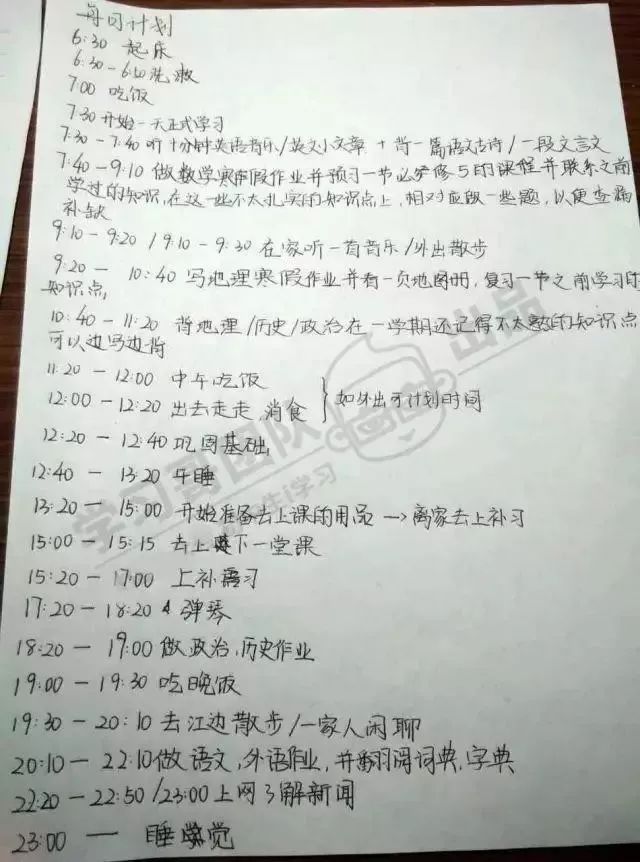 每日计划
6:30 起床
6:30-6:50洗漱
7:00 吃饭
7:30开始一天正式学习
7:30-7:40听十分钟英语音乐/英文小文章 + 背一篇语文古诗/一段文言文
7:40-9:10 做数学寒假作业并预习一节必修5的课程并联系之前
学过的知识,在这一些不太扎实的知识点上,相对应做一些题,以便查漏
补缺
9:10-9:20 / 9:10-9:30 在家听一首音乐/外出散步
9:20- 10:40 写地理寒假作业并看一页地图册,复习一节之前学习的
知识点,
10:40-11:20 背地理/历史/政治在一学期还记得不太熟的知识点
可以边写边背
11:20-12:00 中午吃饭
12:00-12:20 出去走走,消食 } 如外出可计划时间
12:20-12:40 巩固基础,
12:40-13:20 午睡
13:20-15:00 开始准备去上课的用品→离家去上补习
15:00-15:15 去上下一堂课
15:20-17:00 上补习
17:20-18:20 弹琴
18:20-19:00 做政治,历史作业
19:00-19:30 吃晚饭
19:30-20:10 去江边散步/一家人闲聊
20:10-22:10做语文,外语作业,并翻阅词典,字典
22:20-22:50/23:00上网了解新闻
23:00 — 睡觉
学习哥团队 出品
生i学习